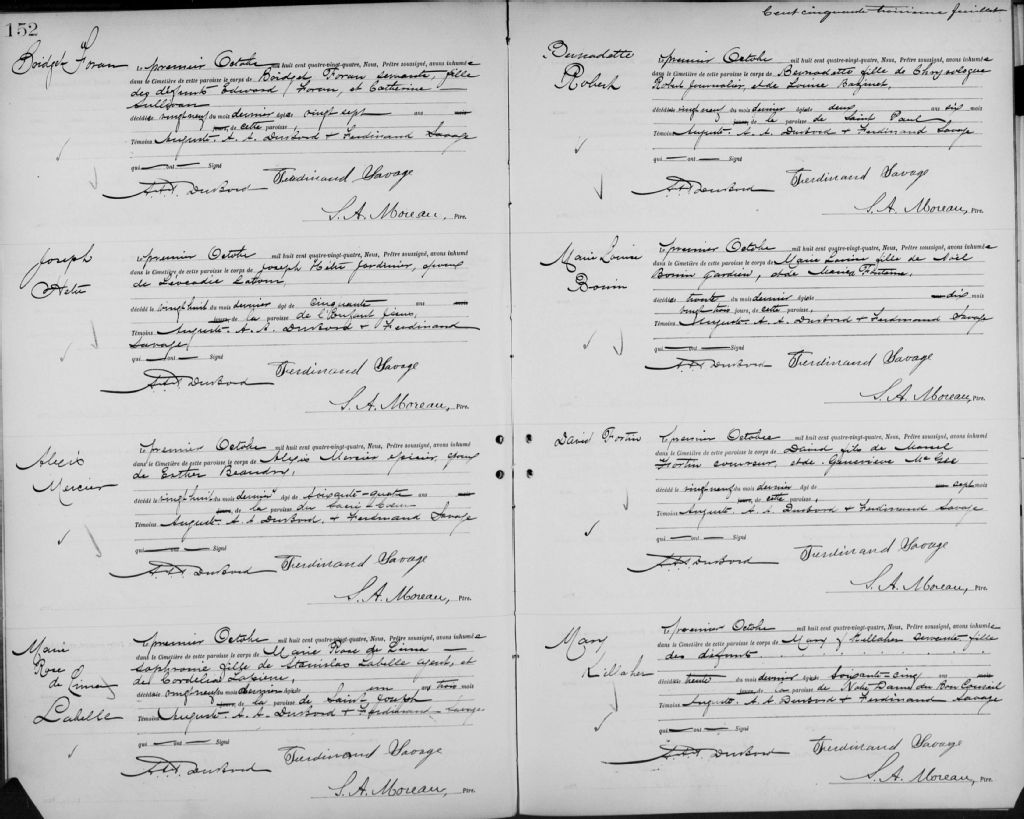 152
Bridget Foran
Le premier Octobre mil huit cent quatre-vingt-quatre, Nous, Prêtre soussigné, avons inhumé
dans le Cimetière de cette paroisse le corps de Bridget Foran servante, fille
des défunts Edward Foran, et Catherine
Sullivan
décédée vingt neuf du mois dernier âgée de vingt sept ans
jours, de cette paroisse,
Témoins Auguste A. A. Dusbord & Ferdinand Savage
qui — ont — Signé
A.A.A. Dusbord Ferdinand Savage
S. A. Moreau, Ptre.
Joseph
Hétu
Le premier Octobre mil huit cent quatre-vingt-quatre, Nous, Prêtre soussigné, avons inhumé
dans le Cimetière de cette paroisse le corps de Joseph Hétu jardinier, époux
de Léocadie Latour,
décédé le vingt huit du mois dernier âgé de Cinquante ans mois
jours, de la paroisse de l'Enfant Jésus,
Témoins Auguste. A. A. Dusbord & Ferdinand
Savage
qui — ont — Signé
A.A.A. Dusbord Ferdinand Savage
S. A. Moreau, Ptre.
Alexis
Mercier
Le premier Octobre mil huit cent quatre-vingt-quatre, Nous, Prêtre soussigné, avons inhumé
dans le Cimetière de cette paroisse le corps de Alexis Mercier épicier, époux
de Esther Beaudry,
décédé le vingt huit du mois dernier âgé de Soixante-quatre ans mois
jours, de la paroisse du Sacré Coeur
Témoins Auguste. A. A. Dusbord, & Ferdinand Savage
qui — ont — Signé
A.A.A. Dusbord Ferdinand Savage
S. A. Moreau, Ptre.
Marie
Rose
de Lima
Labelle
Le premier Octobre mil huit cent quatre-vingt-quatre, Nous, Prêtre soussigné, avons inhumée
dans le Cimetière de cette paroisse le corps de Marie Rose de Lima —
Sophronie fille de Stanislas Labelle agent, et
de Cordélia
décédée vingt neuf du mois dernier âgée de un an trois mois
jours, de la paroisse de Saint Joseph
Témoins Auguste. A. A. Dusbord & Ferdinand Savage
qui — ont — Signé
A.A.A. Dusbord Ferdinand Savage
S. A. Moreau, Ptre.
Cent cinquante troisième feuillet
Bernadette
Robert
Le premier Octobre mil huit cent quatre-vingt-quatre, Nous, Prêtre soussigné, avons inhumé
dans le Cimetière de cette paroisse le corps de Bernadette fille de Chrysologue
Robert journalier, et de Louise Babinet,
décédée vingt neuf du mois dernier âgée de deux ans six mois
jours, de la paroisse de Saint Paul
Témoins Auguste. A. A. Dusbord & Ferdinand Savage
qui — ont — Signé
A.A.A. Dusbord Ferdinand Savage
S. A. Moreau, Ptre.
Marie Louise
Bouin
Le premier Octobre mil huit cent quatre-vingt-quatre, Nous, Prêtre soussigné, avons inhumée
dans le Cimetière de cette paroisse le corps de Marie Louise fille de Noël
Bouin gardien, et de
décédée trente du mois dernier âgée de — dix mois
vingt trois jours, de cette paroisse,
Témoins Auguste. A. A. Dusbord & Ferdinand Savage
qui — ont — Signé
A.A.A. Dusbord Ferdinand Savage
S. A. Moreau, Ptre.
David Fortin
Le premier Octobre mil huit cent quatre-vingt-quatre, Nous, Prêtre soussigné, avons inhumé
dans le Cimetière de cette paroisse le corps de David fils de Marcel
Fortin couvreur, et de Geneviève McGee
décédé le vingt neuf du mois dernier âgé de — sept mois
jours, de cette paroisse,
Témoins Auguste. A. A. Dusbord & Ferdinand Savage
qui — ont — Signé
A.A.A. Dusbord Ferdinand Savage
S. A. Moreau, Ptre.
Mary
Killaher
Le premier Octobre mil huit cent quatre-vingt-quatre, Nous, Prêtre soussigné, avons inhumée
dans le Cimetière de cette paroisse le corps de Mary Killaher servante fille
des défunts . . . . . . . . . .
décédée trente du mois dernier âgée de Soixante-cinq ans
jours, de la paroisse de Notre Dame du Bon Conseil
Témoins Auguste. A. A. Dusbord & Ferdinand Savage
qui — ont — Signé
A.A.A. Dusbord Ferdinand Savage
S. A. Moreau, Ptre.